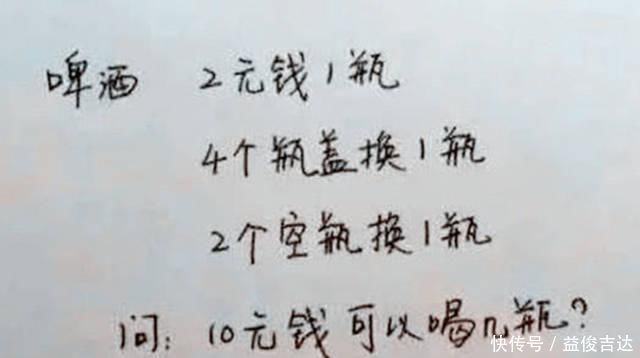 啤酒 2元钱1瓶
4个瓶盖换1瓶
2个空瓶换1瓶
问: 10元钱可以喝几瓶?
快传号/益俊吉达